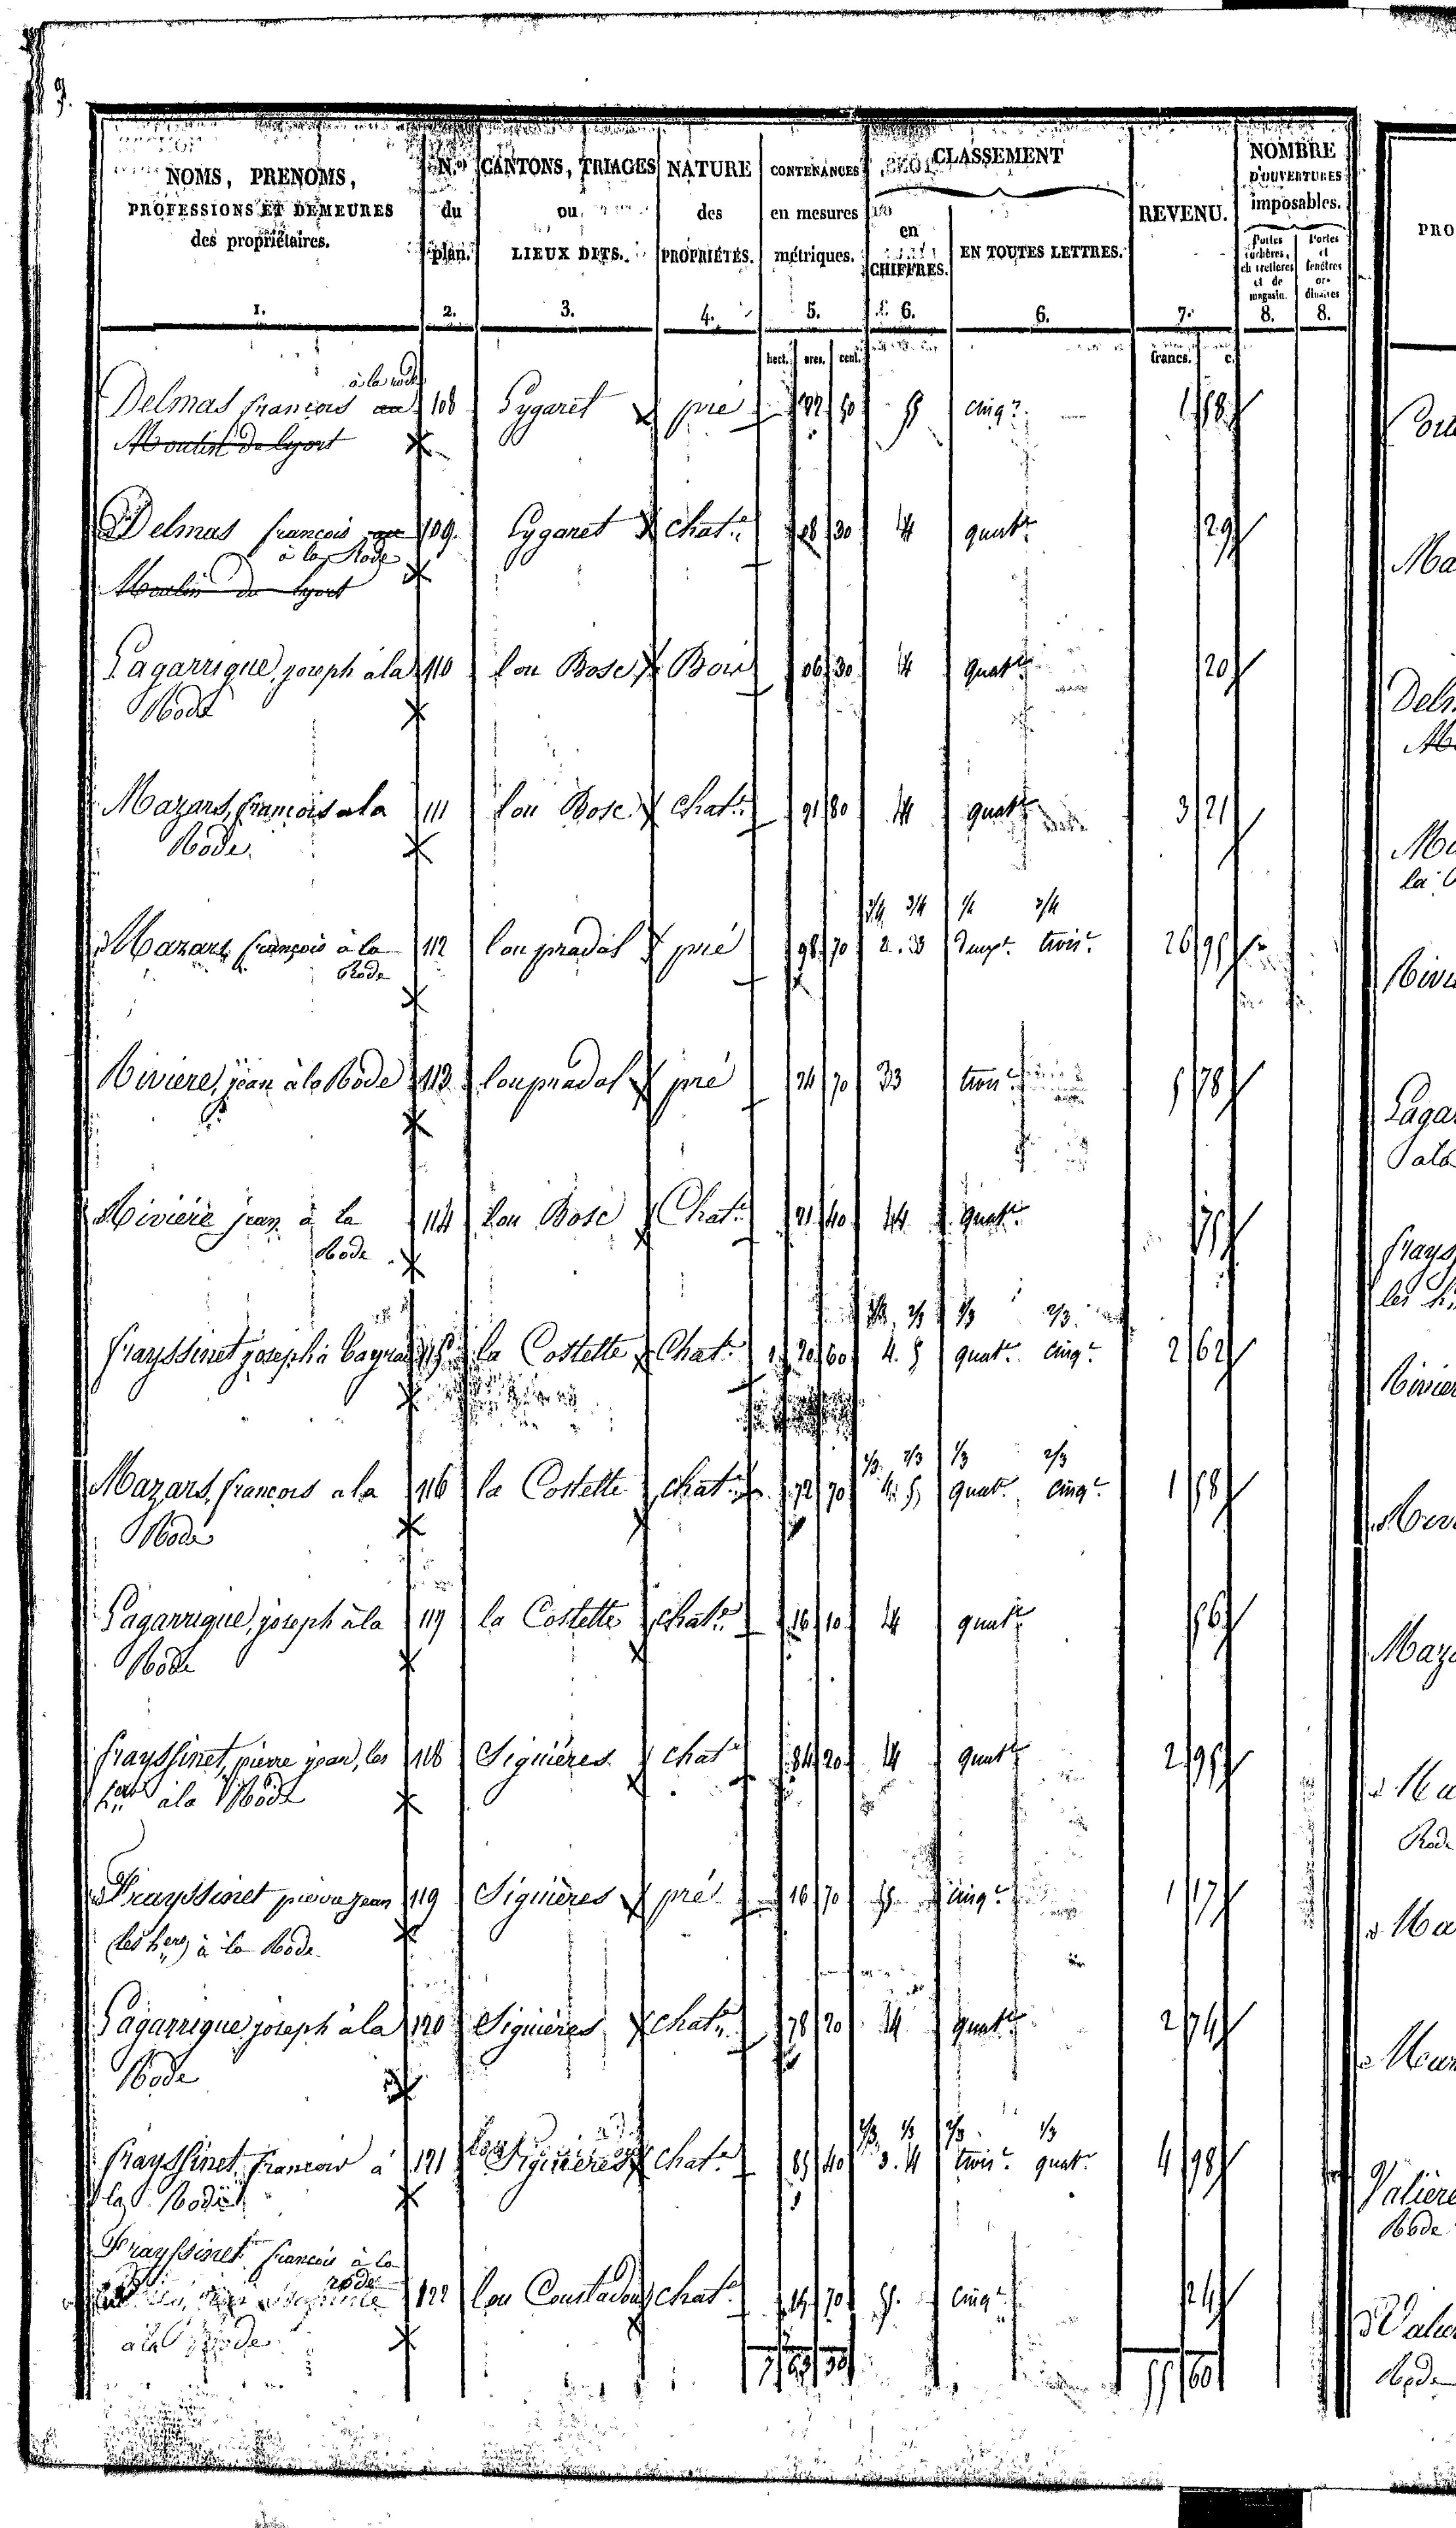 9.
NOMS, PRENOMS, PROFESSIONS ET DEMEURES des propriétaires. 1. | N.os du plan. 2. | CANTONS, TRIAGES ou LIEUX DITS. 3. | NATURE des PROPRIÉTÉS. 4. | CONTENANCES en mesures métriques. 5. | CLASSEMENT en CHIFFRES. 6. | EN TOUTES LETTRES. 6. | REVENU. 7. | NOMBRE D'OUVERTURES imposables. Portes cochères, charretières et de magasin. 8. | Portes et fenêtres ordinaires 8.
hect. ares. cent. francs. c.
à la rode
Delmas francois au 108 Pygaret pré 22 50 5 cinq.e 1 58
Moulin de lyort
Delmas francois au 109. Pygaret chat.e 08 30 4 quat.e 29
à la Rode
Moulin de lyort
Lagarrigue, joseph à la 110 lou Bosc Bois 06 30 4 quat.e 20
Rode
Mazars, francois a la 111 lou Bosc chat.e 91 80 4 quat.e 3 21
Rode.
1/4 3/4 1/4 3/4
Mazars françois à la 112 lou pradal pré 98 70 2. 3 deux.e trois.e 26 95
Rode
Riviere, jean à la Rode 113 lou pradal pré 24 70 3 trois.e 5 78
Riviere jean à la 114 lou Bosc Chat.e 21 40 4 quat.e 75
Rode
1/3 2/3 1/3 2/3
frayssinet joseph à Cayrac 115 la Costette Chat.e 1 20 60 4. 5 quat.e cinq.e 2 62
1/3 2/3 1/3 2/3
Mazars, francois a la 116 la Costette chat.e 72 70 4. 5 quat.e cinq.e 1 58
Rode
Lagarrigue, joseph à la 117 la Costette chat.e 16 10 4 quat.e 56
Rode
frayssinet, pierre jean, les 118 Signières chat.e 84 20 4 quat.e 2 95
h.ers à la Rode
Frayssinet pierre jean 119 Signières pré 16 70 5 cinq.e 1 17
(les hers) à la Rode
Lagarrigue joseph à la 120 Signières chat.e 78 20 4 quat.e 2 74
Rode
2/3 1/3 2/3 1/3
frayssinet, francois à 121 Signières chat.e 85 40 3. 4 trois.e quat.e 4 98
la Rode
Frayssinet francois à la
rode 122 lou Coustadou chat.e 15 70 5. cinq.e 24
à la Rode
7 63 30 55 60